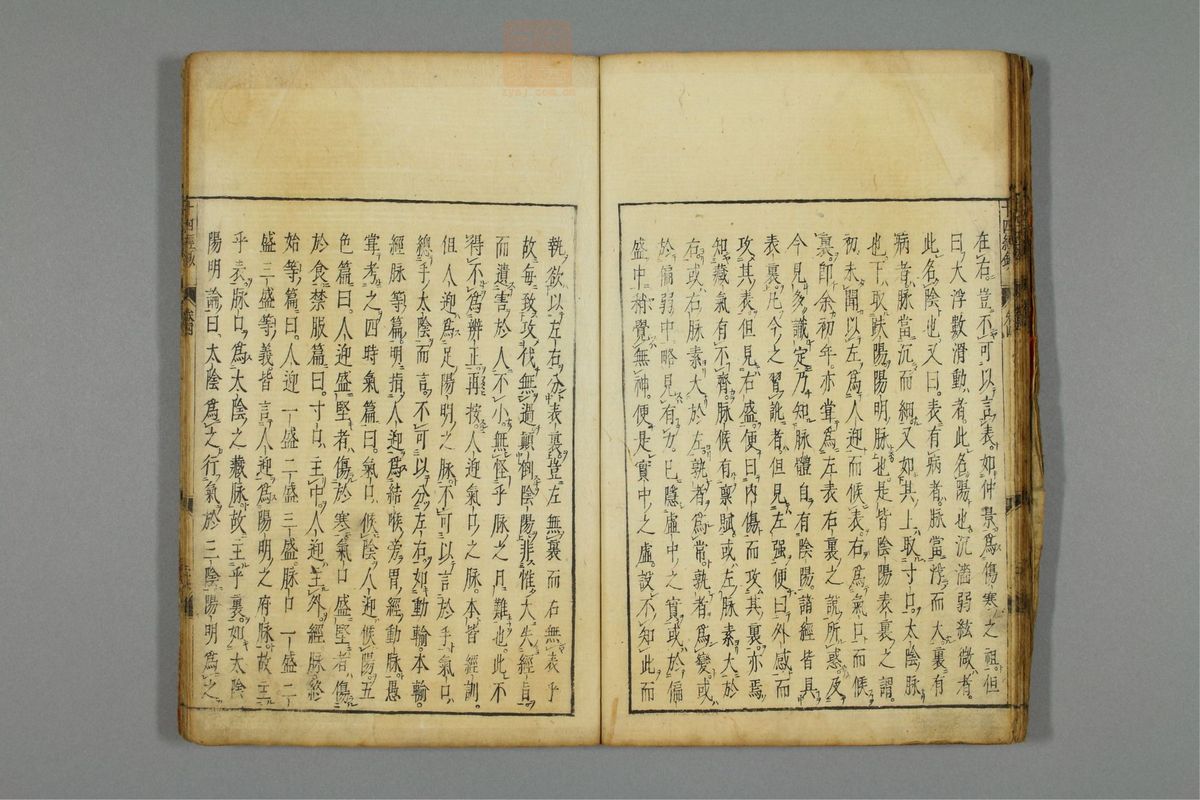 在右豈不可以言表如仲景爲傷寒之祖但
曰大浮數滑動者此名陽也沉濇弱弦微者
此名陰也又曰表有病者脉當浮而大裏有
病者脉當沉而細又如其上取寸口太陰脉
也下取趺陽陽明脉也是皆陰陽表裏之謂
初未聞以左爲人迎而候表右爲氣口而候
裏即余初年亦嘗爲左表右裏之說所惑及
今見多識定乃知脉體自有陰陽諸經皆具
表裏凡今之習訛者但見左强便曰外感而
攻其表但見右盛便曰内傷而攻其裏亦焉
知藏氣有不齊脉候有禀賦或左脉素大於
右或右脉素大於左孰者爲常孰者爲變或
於偏弱中略見有力已隱虛中之實或於偏
盛中稍覺無神便是實中之虛設不知此而
執欲以左右分表裏豈左無裏而右無表乎
故每致攻伐無過顛倒陰陽非惟大失經旨
而遺害於人不小無怪乎脉之日難也此不
得不爲辨正再按人迎氣口之脉本皆經訓
但人迎爲足陽明之脉不可以言於手氣口
總手太陰而言不可以分左右如動輸本輸
經脉等篇明指人迎爲結喉旁胃經動脉愚
嘗考之四時氣篇曰氣口候陰人迎候陽五
色篇曰人迎盛堅者傷於寒氣口盛堅者傷
於食禁服篇曰寸口主中人迎主外經脉終
始等篇曰人迎一盛二盛三盛脉口一盛二
盛三盛等義皆言人迎爲陽明之府脉故主
乎表脉口爲太陰之藏脉故主乎裏如太陰
陽明論曰太陰爲之行氣於三陰陽明爲之